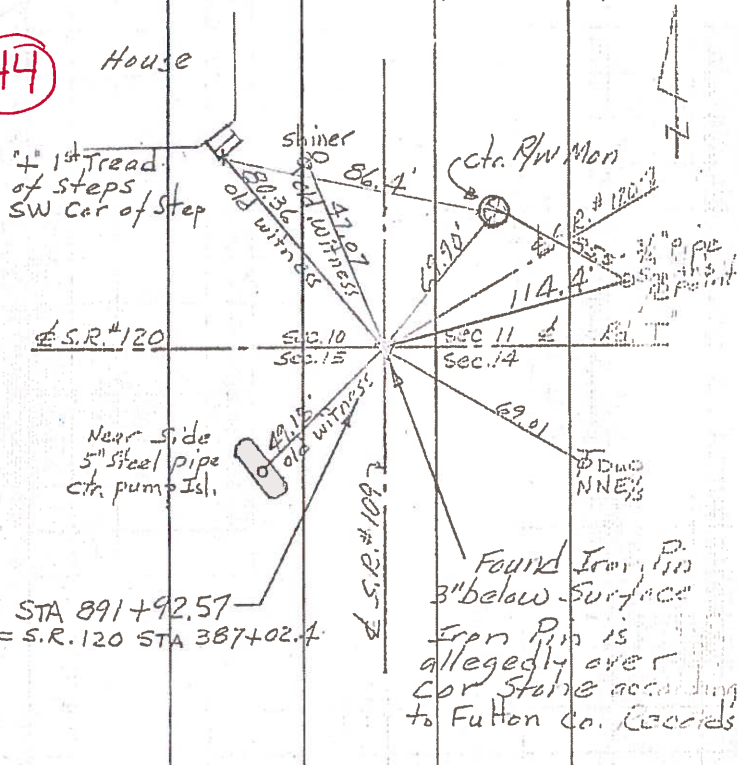 44
House
"+" 1st Tread
of Steps
SW Cor of Step
shiner
86.4'
ctr. R/W Mon
80.36
old witness
47.07
old witness
¢ S.R. #120
3/4" pipe
point
114.4'
¢ S.R. #120
Sec. 10
Sec. 15
Sec 11 ¢
Sec. 14
Near Side
5" Steel pipe
ctr. pump Isl.
49.15'
old witness
69.01
NNE
¢ S.R. #109
STA 891+92.57
= S.R. 120 STA 387+02.4
Found Iron Pin
3" below Surface
Iron Pin is
allegedly over
Cor Stone according
to Fulton Co. Records